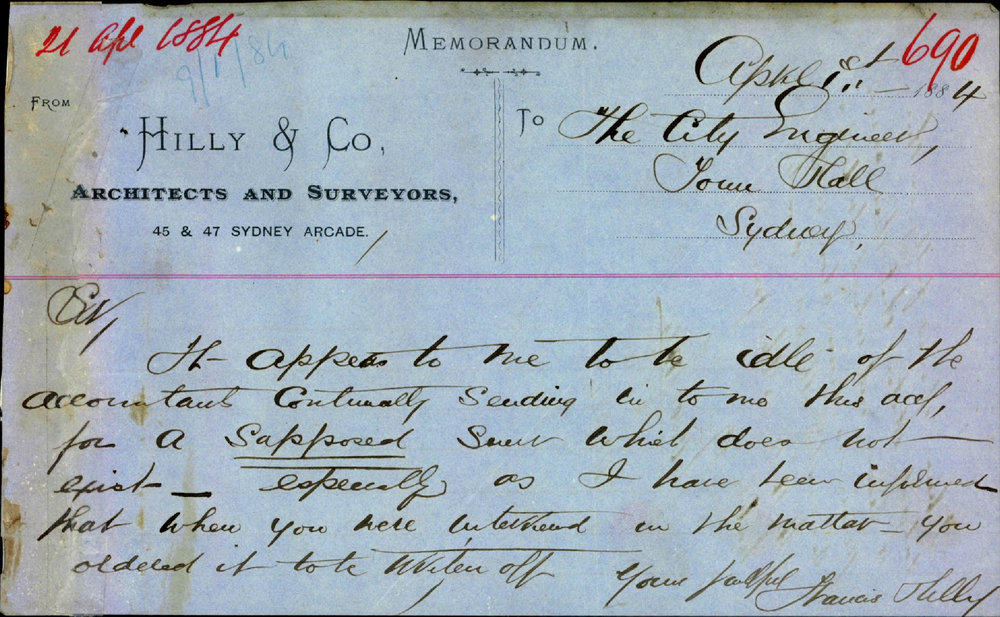 21 Apl 1884
9/1/84
MEMORANDUM.
690
April 1st 1884
FROM
HILLY & CO,
ARCHITECTS AND SURVEYORS,
45 & 47 SYDNEY ARCADE.
To The City Engineer,
Town Hall
Sydney,
Sir,
It appears to me to be idle of the
accountant Continually Sending in to me this acct,
for a Supposed Sewer which does not
exist — especially as I have been informed
that when you were interviewed in the matter — you
ordered it to be written off
Yours faithful
Francis Hilly